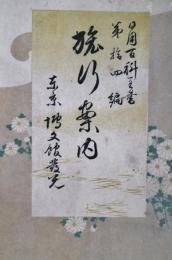 日用百科全書
第拾四編
旅行案内
東京 博文館發兌